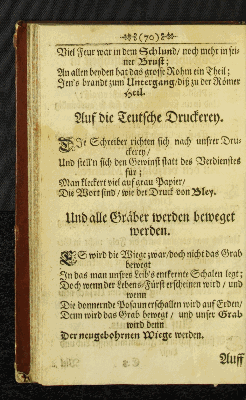 (70)
Viel Feur war in dem Schlund/ noch mehr in sei-
ner Brust;
An allen beyden hat das grosse Rohm ein Theil;
Jen's brandt zum Untergang/ diß zu der Römer
Heil.
Auf die Teutsche Druckerey.
DIe Schreiber richten sich nach unsrer Dru-
ckerey/
Und stell'n sich den Gewinst statt des Verdienstes
für;
Man kleckert viel auf grau Papier/
Die Wort sind/ wie der Druck von Bley.
Und alle Gräber werden beweget
werden.
ES wird die Wiege zwar/ doch nicht das Grab
bewegt
In das man unsres Leib's entseelte Schalen legt;
Doch wenn der Lebens-Fürst erscheinen wird/ und
wenn
Die donnernde Posaun erschallen wird auf Erden/
Denn wird das Grab bewegt/ und unser Grab
wird denn
Der neugebohrnen Wiege werden.
Auff